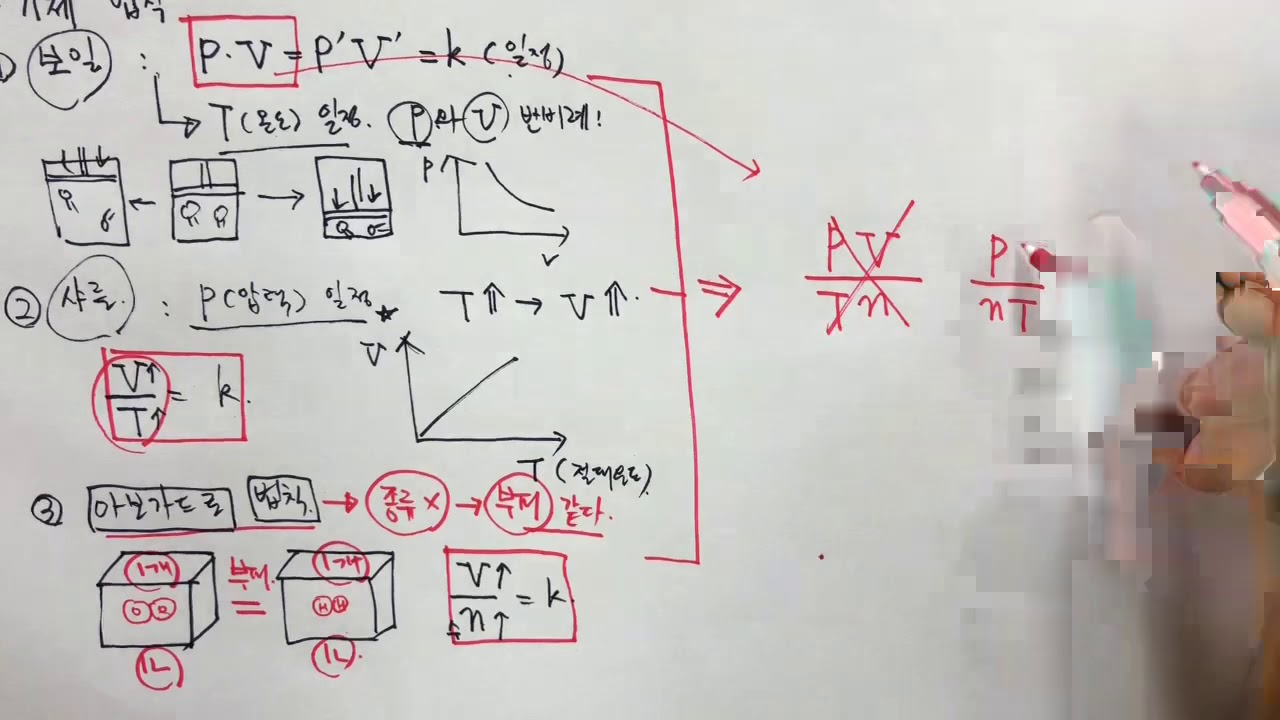 기체 법칙
① 보일 : P·V = P'V' = k (일정)
T(온도) 일정. P와 V 반비례!
P
V
② 샤를. : P(압력) 일정 ★ T⇑ → V⇑.
V↑/T↑ = k.
V
T (절대온도).
③ 아보가드로 법칙. → 종류 × → 부피 같다.
1개 부피. 1개
=
1L 1L.
V↑/n↑ = k.
⇒ PV/Tn P/nT